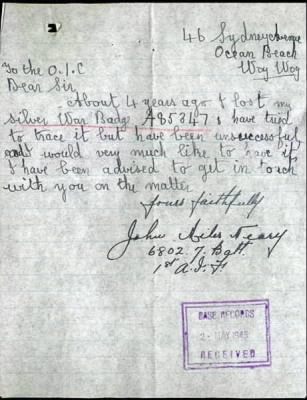 46 Sydney Avenue
Ocean Beach
Woy Woy
To the O.I.C
Dear Sir,
About 4 years ago I lost my
silver War Badge A85347 I have tried
to trace it but have been unsuccessful
and would very much like to have it
I have been advised to get in touch
with you on the matter
Yours faithfully
John Miles Neary
6802 7 Batt.
1st A.I.F.
BASE RECORDS
2 - MAY 1945
RECEIVED